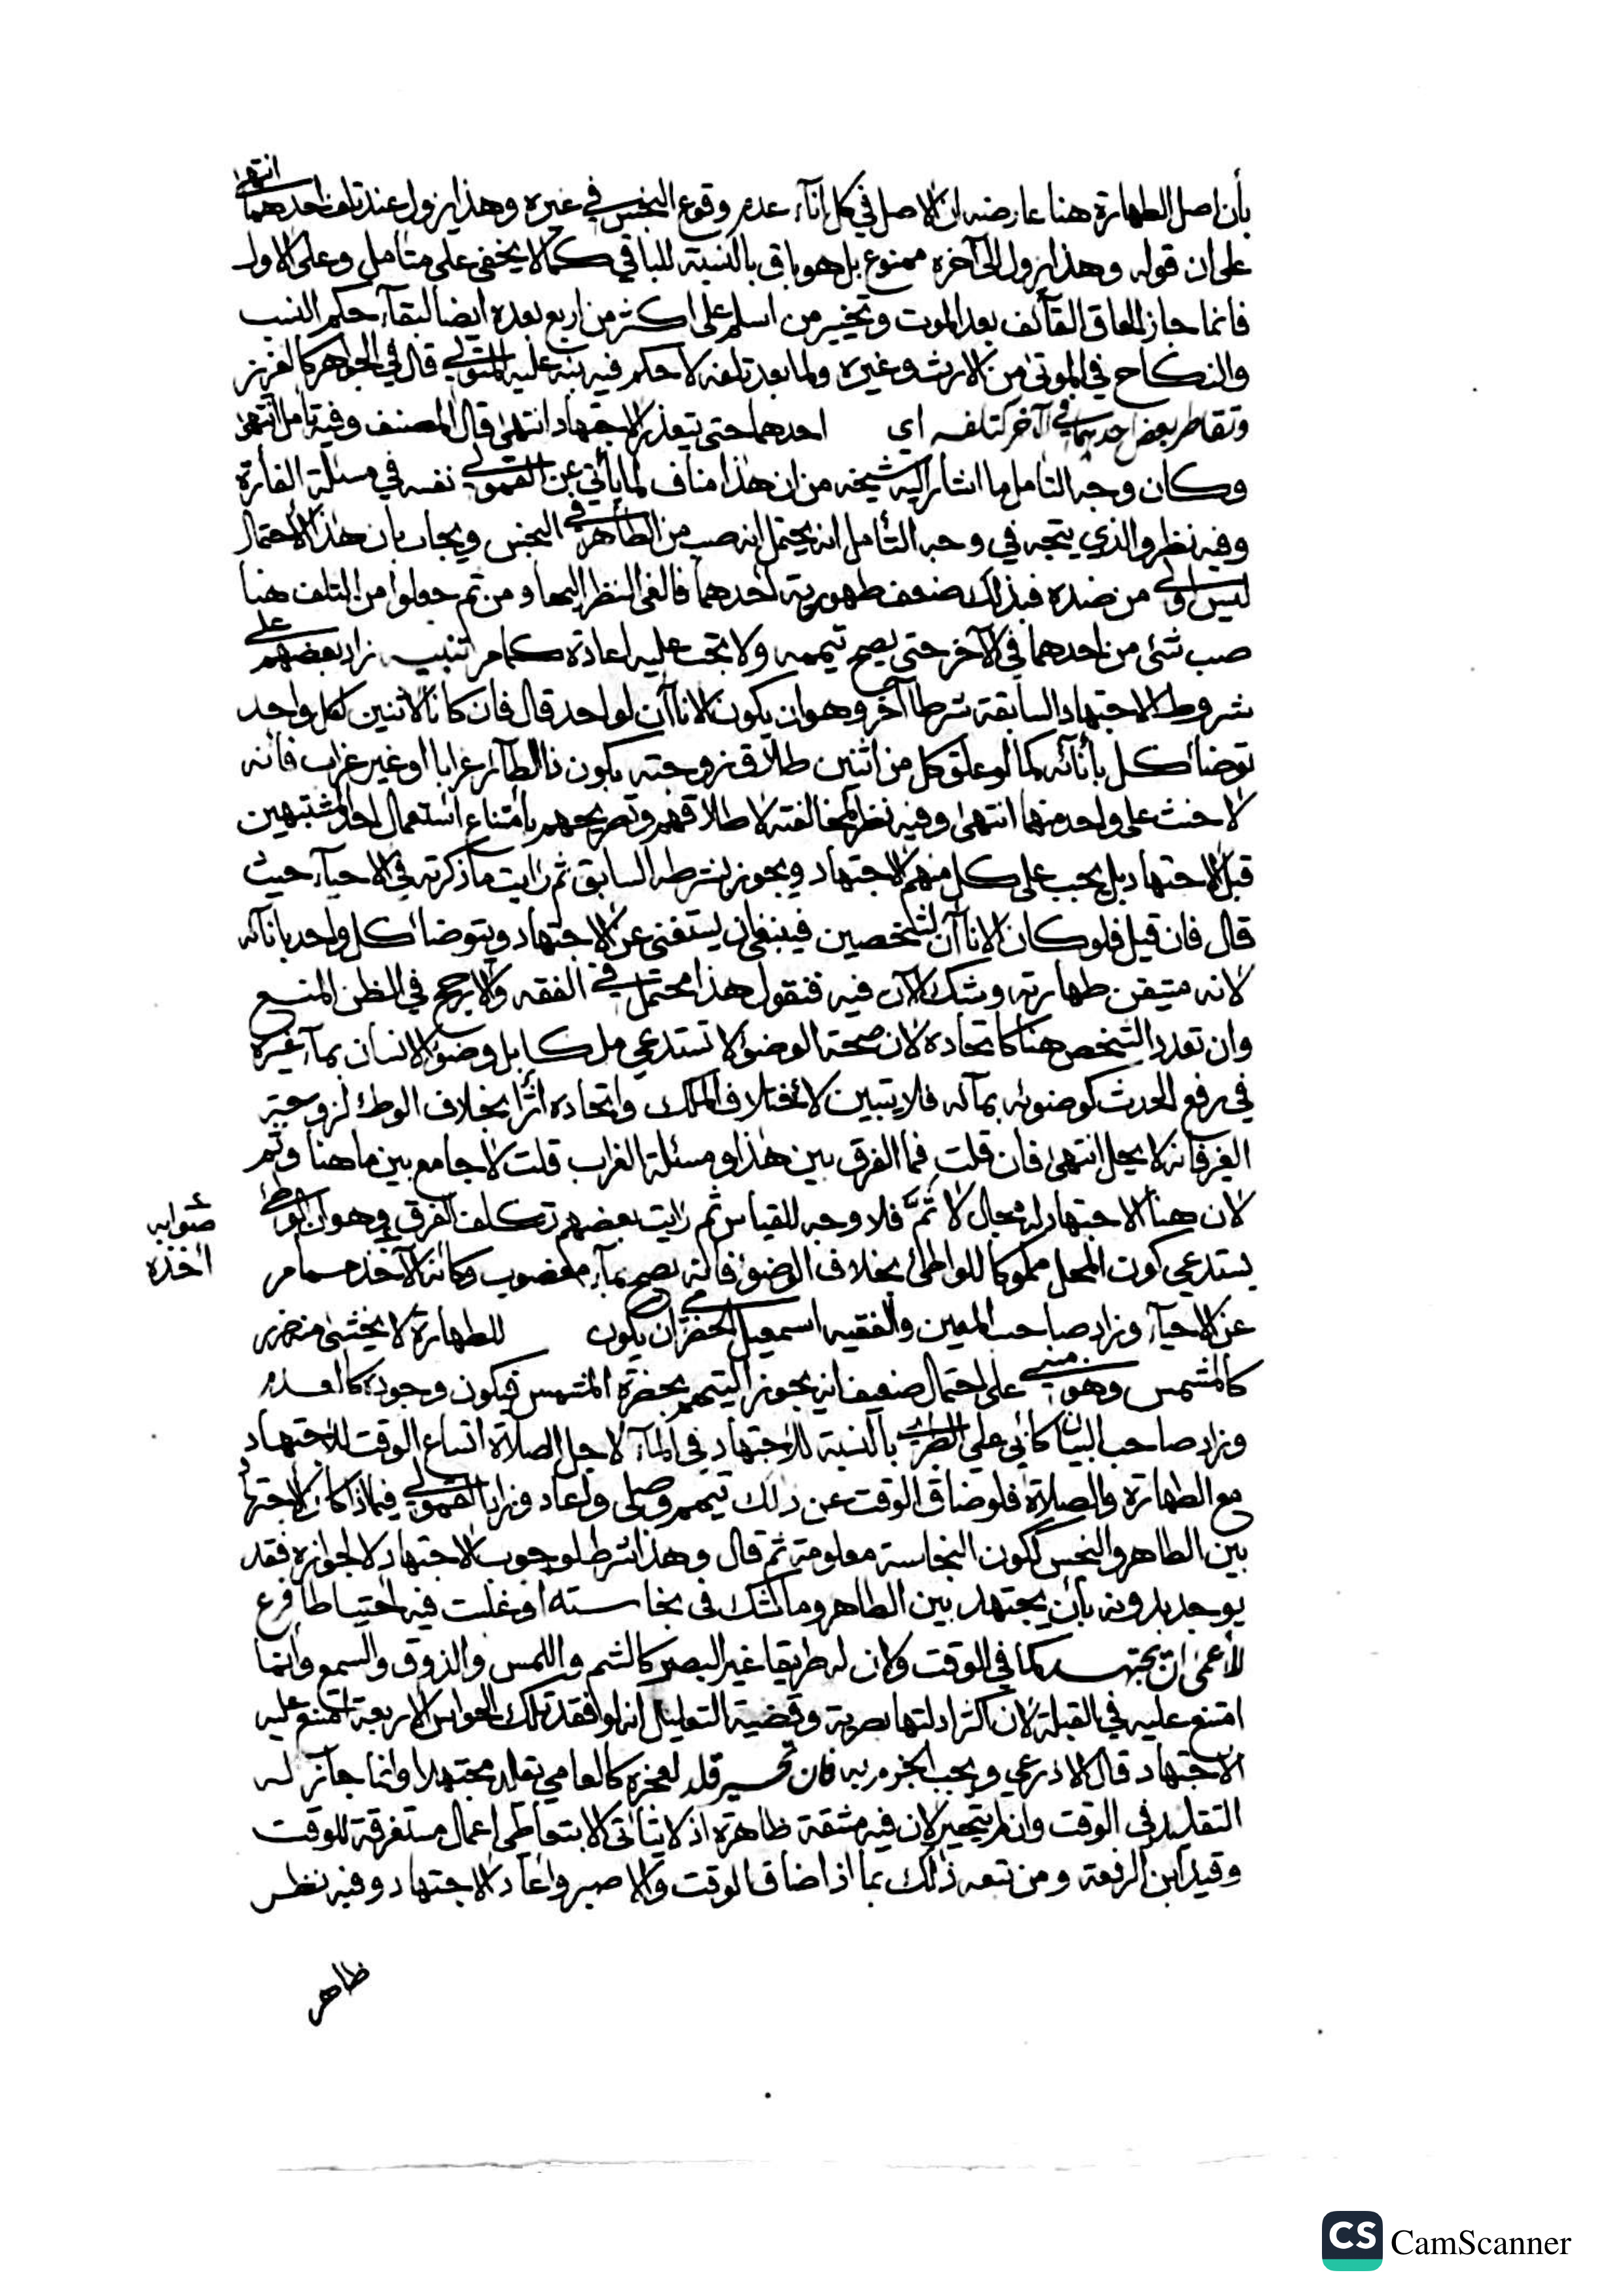 بأن اصل الطهارة هنا عارضه ان الاصل في كل انآء عدم وقوع النجس في غيره وهذا يزول عند تلف احدهما انتهى
على ان قوله وهذا يزول الى آخره ممنوع بل هو باق بالنسبة للباقي كما لا يخفى على متأمل وعلى الاول
فانما جاز الحاق القآئف بعد الموت وتخيير من اسلم على اكثر من اربع بعده ايضا لبقآء حكم النسب
والنكاح في الموتى من الارث وغيره ولما بعد تلفه لا حكم فيه نبه عليه المتولي قال في الجواهر كالغزيز
وتقاطر بعض احدهما في الآخر كتلفه اي احدهما حتى يتعذر الاجتهاد انتهى قال المصنف وفيه تامل انتهى
وكان وجه التامل ما اشار اليه شيخه من ان هذا مناف لما يأتي عن القمولي نفسه في مسئلة الفأرة
وفيه نظر والذي يتجه في وجه التأمل انه يحتمل انه صب من الطاهر في النجس ويجاب بان هذا الاحتمال
ليس اولى من ضده فبذلك ضعف طهورية احدهما فالغى النظر اليها ومن ثم جعلوا من التلف هنا
صب شئ من احدهما في الآخر حتى يصح تيممه ولا تجب عليه اعادة كما مر تنبيه زاد بعضهم على
شروط الاجتهاد السابقة شرطا آخر وهو ان يكون الاناآن لواحد قال فان كانا لاثنين لكل واحد
توضأ كل بأنآئه كما لو علق كل من اثنين طلاق زوجته بكون ذا الطآئر غرابا او غير غراب فانه
لا حنث على واحد منهما انتهى وفيه نظر لمخالفته لاطلاقهم وتصريحهم بامتناع استعمال احد المشتبهين
قبل الاجتهاد بل يجب على كل منهم الاجتهاد ويجوز بشرطه السابق ثم رايت ما ذكرته في الاحيآء حيث
قال فان قيل فلو كان الاناآن لشخصين فينبغي ان يستغنى عن الاجتهاد ويتوضأ كل واحد بانآئه
لانه متيقن طهارته وشك الآن فيه فنقول هذا محتمل في الفقه والارجح في الظن المنع
وان تعدد الشخص هنا كاتحاده لان صحة الوضؤ لا تستدعي ملكا بل وضؤ الانسان بمآء غيره
في رفع الحدث كوضوئه بمآئه فلا يتبين لاختلاف الملك واتحاده اثرا بخلاف الوطئ لزوجة
الغير فانه لا يحل انتهى فان قلت فما الفرق بين هذا ومسئلة الغراب قلت لا جامع بين ما هنا وثم
لان هنا الاجتهاد له مجال لا ثم فلا وجه للقياس ثم رايت بعضهم تكلف الفرق وهو ان الوطئ
يستدعي كون المحل مملوكا للواطئ بخلاف الوضؤ فانه يصح بمآء مغصوب وكانه الآخذ مما مر
صوابه
اخذه
عن الاحيآء وزاد صاحب المعين والفقيه اسمعيل الحضرمي ان يكون للطهارة لا يخشى منه ضرر
كالمشمس وهو مبني على احتمال ضعيف انه يجوز التيمم بحضرة المشمس فيكون وجوده كالعدم
وزاد صاحب البيان كابي علي الطبري بالنسبة للاجتهاد في المآء لاجل الصلاة اتساع الوقت للاجتهاد
مع الطهارة والصلاة فلو ضاق الوقت عن ذلك تيمم وصلى واعاد وزاد القمولي فيما اذا كان الاجتهاد
بين الطاهر والنجس كون النجاسة معلومة ثم قال وهذا شرط لوجوب الاجتهاد لا لجوازه فقد
يوجد بدونه بأن يجتهد بين الطاهر وما شك في نجاسته او غلبت فيه احتياطا فرع
للأعمى ان يجتهد كما في الوقت ولان له طريقا غير البصر كالشم واللمس والذوق والسمع وانما
امتنع عليه في القبلة لان اكثر ادلتها بصرية وقضية التعليل انه لو فقد تلك الحواس الاربعة امتنع عليه
الاجتهاد قال الاذرعي ويجب الجزم به فان تحير قلد لعجزه كالعامي يقلد مجتهدا وانما جآز له
التقليد في الوقت وان لم يتحير لان فيه مشقة ظاهرة اذ لا يتأتى الا بتعاطي اعمال مستغرقة للوقت
وقيد ابن الرفعة ومن تبعه ذلك بما اذا ضاق الوقت والا صبر واعاد الاجتهاد وفيه نظر
ظاهر
CS CamScanner